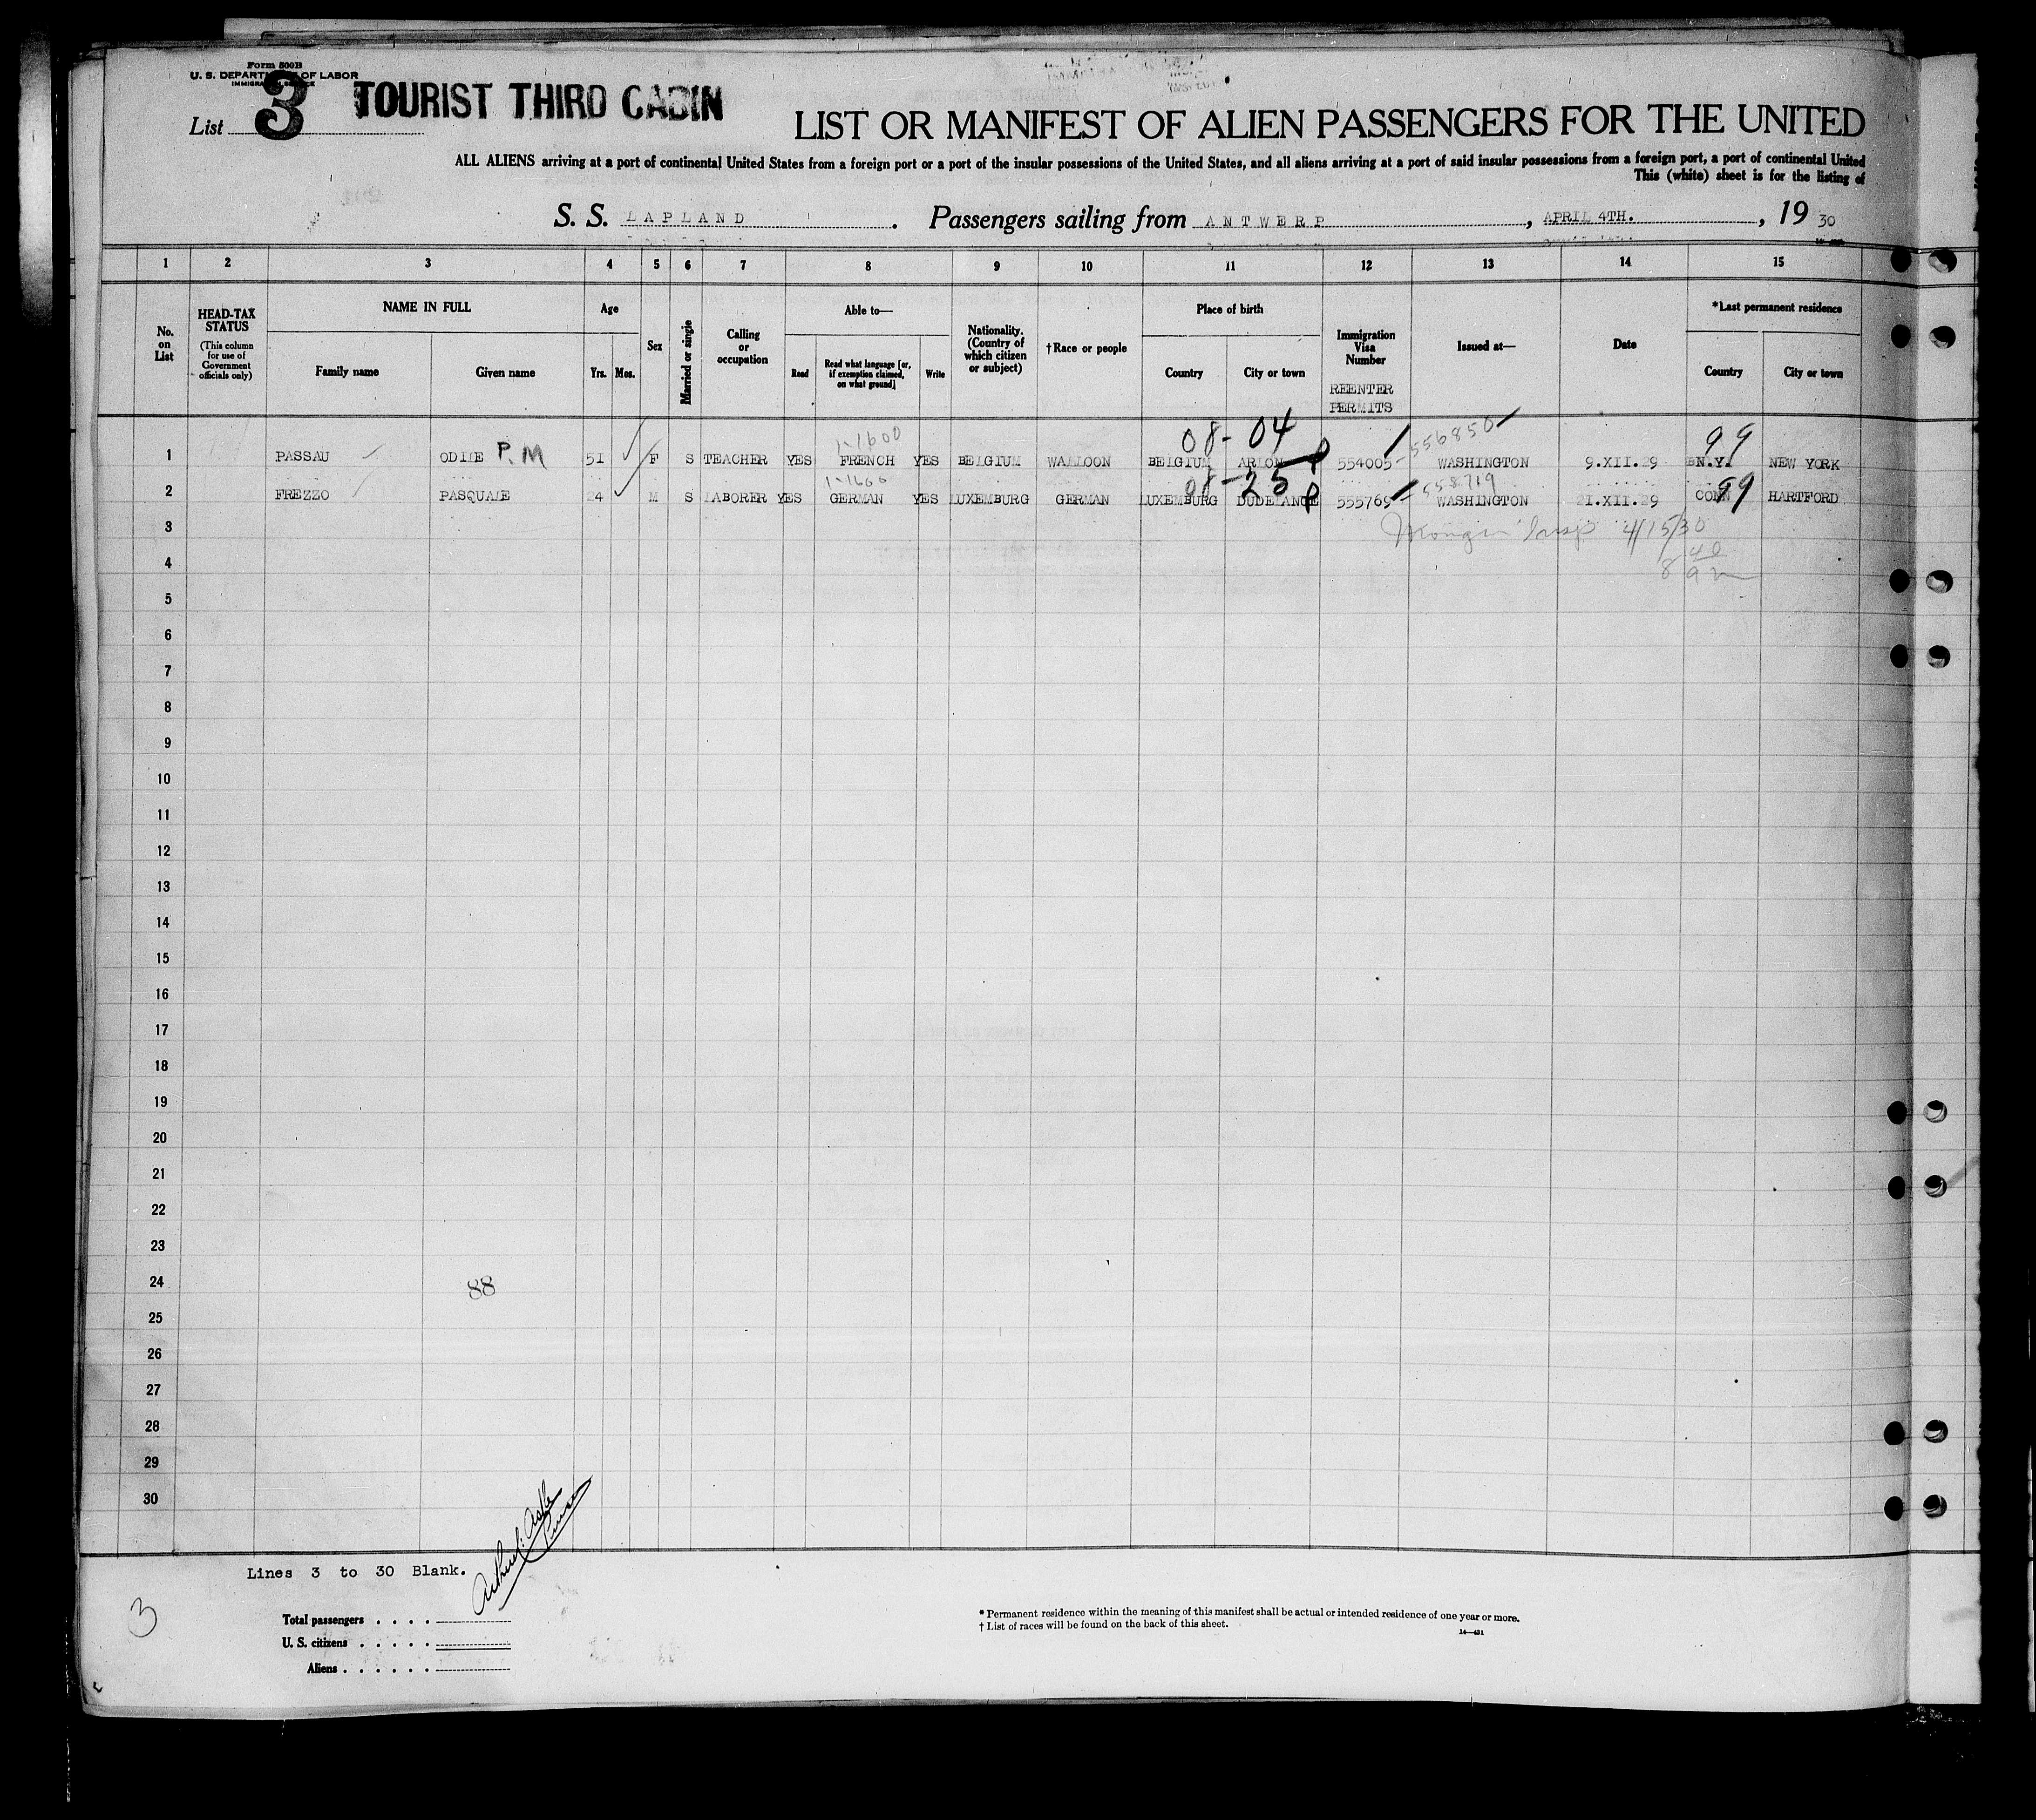 Form 500B
U. S. DEPARTMENT OF LABOR
List 3
TOURIST THIRD CABIN
LIST OR MANIFEST OF ALIEN PASSENGERS FOR THE UNITED
ALL ALIENS arriving at a port of continental United States from a foreign port or a port of the insular possessions of the United States, and all aliens arriving at a port of said insular possessions from a foreign port, a port of continental United
This (white) sheet is for the listing of
S. S. LAPLAND . Passengers sailing from ANTWERP , APRIL 4TH. , 19 30
1 2 3 4 5 6 7 8 9 10 11 12 13 14 15
No. on List
HEAD-TAX STATUS (This column for use of Government officials only)
NAME IN FULL
Family name Given name
Age
Yrs. Mos.
Sex
Married or single
Calling or occupation
Able to—
Read
Read what language [or, if exemption claimed, on what ground]
Write
Nationality. (Country of which citizen or subject)
†Race or people
Place of birth
Country City or town
Immigration Visa Number
REENTER PERMITS
Issued at—
Date
*Last permanent residence
Country City or town
1-1600 08-04 556850 99
1 PASSAU ODILE P.M 51 F S TEACHER YES FRENCH YES BELGIUM WALLOON BELGIUM ARLON 554005 WASHINGTON 9.XII.29 N.Y. NEW YORK
1-1600 08-25 558719 99
2 FREZZO PASQUALE 24 M S LABORER YES GERMAN YES LUXEMBURG GERMAN LUXEMBURG DUDELANGE 555769 WASHINGTON 21.XII.29 CONN HARTFORD
3 Insp 4/15/30
4
5
6
7
8
9
10
11
12
13
14
15
16
17
18
19
20
21
22
23
24 88
25
26
27
28
29
30
Lines 3 to 30 Blank.
3
Total passengers . . . .
U. S. citizens . . . . .
Aliens . . . . . .
* Permanent residence within the meaning of this manifest shall be actual or intended residence of one year or more.
† List of races will be found on the back of this sheet.